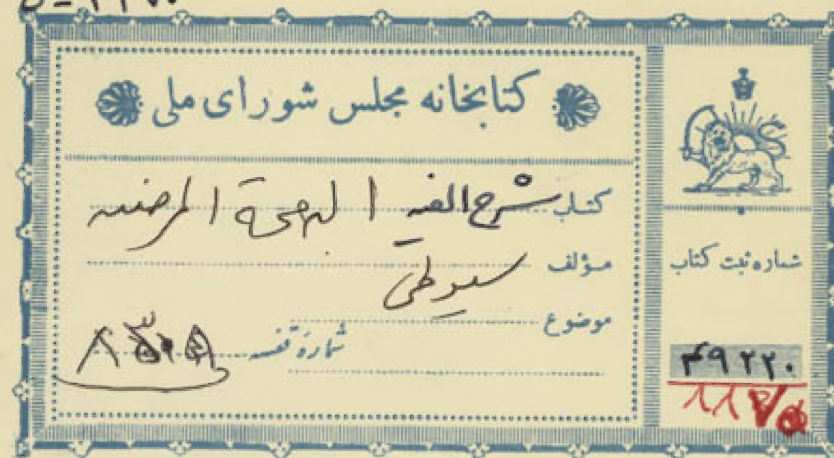 کتابخانه مجلس شورای ملی
کتاب شرح الفیه البهجة المرضیه
مؤلف سیوطی
موضوع
شماره قفسه
شماره ثبت کتاب
۴۹۲۲۰